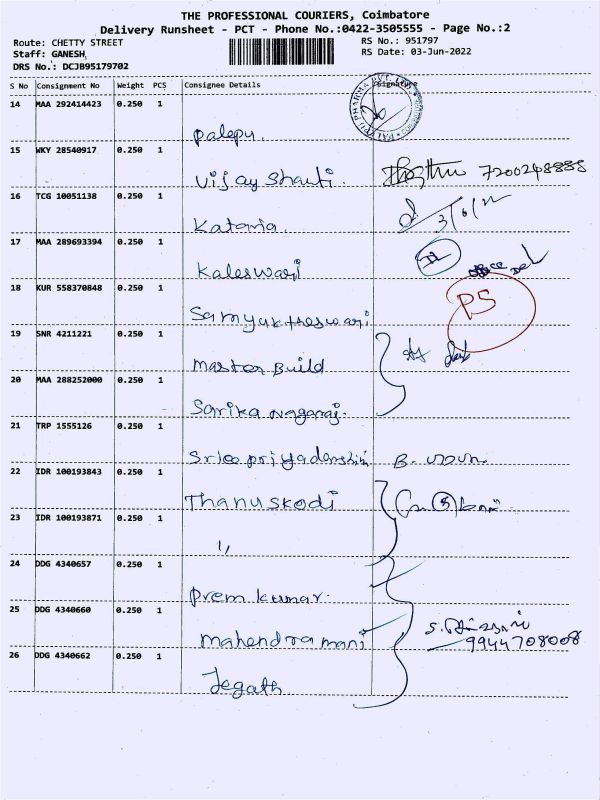 THE PROFESSIONAL COURIERS, Coimbatore
Delivery Runsheet - PCT - Phone No.:0422-3505555 - Page No.:2
Route: CHETTY STREET RS No.: 951797
Staff: GANESH, RS Date: 03-Jun-2022
DRS No.: DCJB95179702
S No Consignment No Weight PCS Consignee Details Signature
14 MAA 292414423 0.250 1
Palepu.
15 WKY 28540917 0.250 1
Vijay Shanti. 7200248885
16 TCG 10051138 0.250 1
Kataria. 3/6/22
17 MAA 289693394 0.250 1
Kaleswari office
18 KUR 558370848 0.250 1 PS
Samyuktheswari
19 SNR 4211221 0.250 1
Master Build
20 MAA 288252000 0.250 1
Sarika Nagaraj.
21 TRP 1555126 0.250 1
Sree priyadarshini B.
22 IDR 100193843 0.250 1
Thanuskodi
23 IDR 100193871 0.250 1
"
24 DDG 4340657 0.250 1
Prem kumar.
25 DDG 4340660 0.250 1
Mahendra mani 9944708008
26 DDG 4340662 0.250 1
Jegath